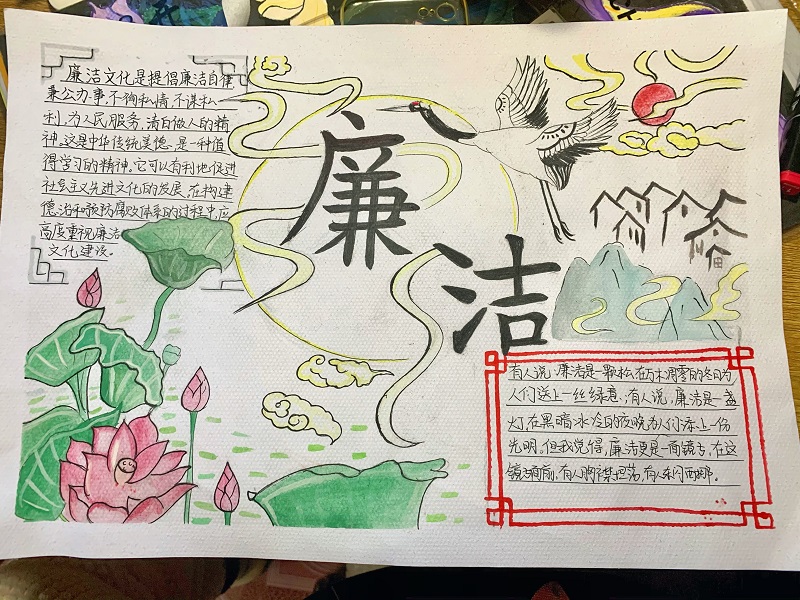 廉洁文化是提倡廉洁自律
秉公办事，不徇私情，不谋私
利，为人民服务，清白做人的精
神。这是中华传统美德，是一种值
得学习的精神。它可以有利地促进
社会主义先进文化的发展，在构建
德治和预防腐败体系的过程中应
高度重视廉洁
文化建设。
廉
洁
有人说，廉洁是一颗松，在万木凋零的冬日为
人们送上一丝绿意；有人说，廉洁是一盏
灯，在黑暗冰冷的夜晚为人们添上一份
光明。但我觉得，廉洁更是一面镜子，在这
镜子面前，有人胸襟坦荡，有人东闪西挪。